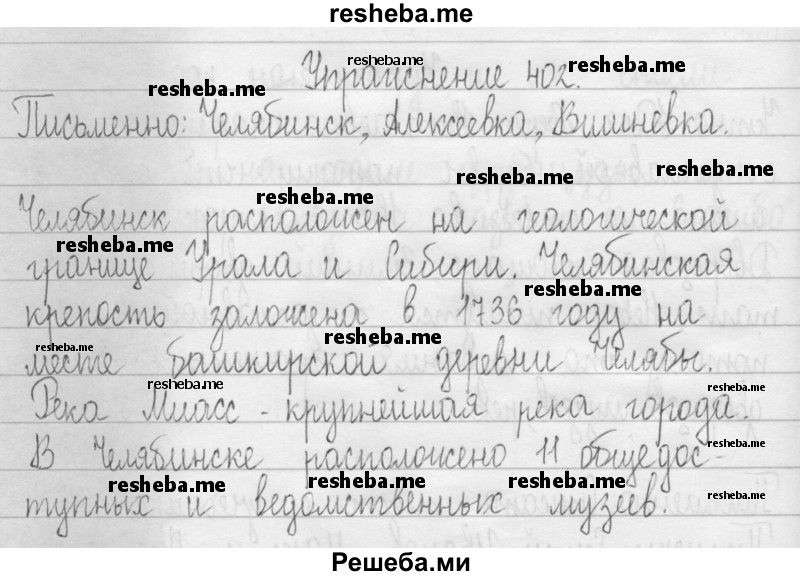 resheba.me
Упражнение 402.
resheba.me resheba.me resheba.me
Письменно: Челябинск, Алексеевка, Вишневка.
resheba.me resheba.me resheba.me
Челябинск расположен на геологической
resheba.me
границе Урала и Сибири. Челябинская
resheba.me
крепость заложена в 1736 году на
resheba.me
месте башкирской деревни Челябы.
resheba.me resheba.me
Река Миасс - крупнейшая река города.
resheba.me
В Челябинске расположено 11 общедос-
resheba.me resheba.me resheba.me resheba.me
тупных и ведомственных музеев.
Решеба.ми